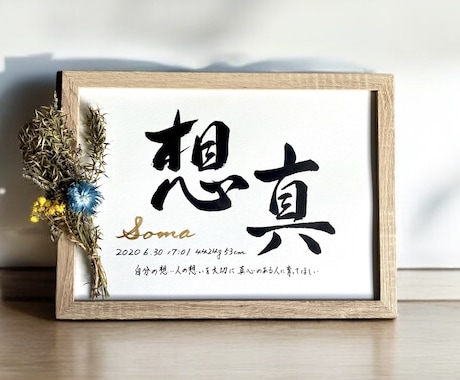 想真
Soma
2020 6.30 17:01 4424g 53cm
自分の想い人の想いを大切に 真心のある人に育ってほしい